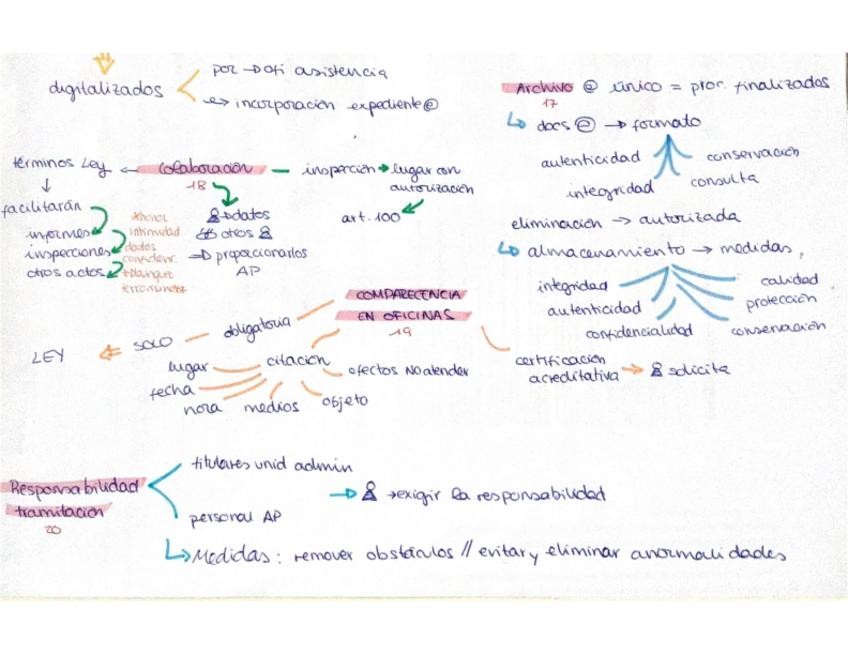 digitalizados
por → Ofi asistencia
incorporación expediente @
Archivo @ único = proc. finalizados
17
docs @ → formato
autenticidad
conservación
integridad
consulta
eliminación → autorizada
almacenamiento → medidas,
integridad
calidad
autenticidad
protección
confidencialidad
conservación
términos Ley ← Colaboración — inspección → lugar con
autorización
18
art. 100
facilitarán
informes
inspecciones
otros actos
*honor
intimidad
datos
confidenc.
*blanqueo
terrorismo*
datos
otros
→ proporcionarlos
AP
COMPARECENCIA
EN OFICINAS
19
obligatoria
SOLO
LEY
citación
lugar
fecha
hora
medios
objeto
efectos NO atender
certificación
acreditativa → solicita
Responsabilidad
tramitación
20
titulares unid admin
personal AP
→ exigir la responsabilidad
Medidas: remover obstáculos // evitar y eliminar anormalidades